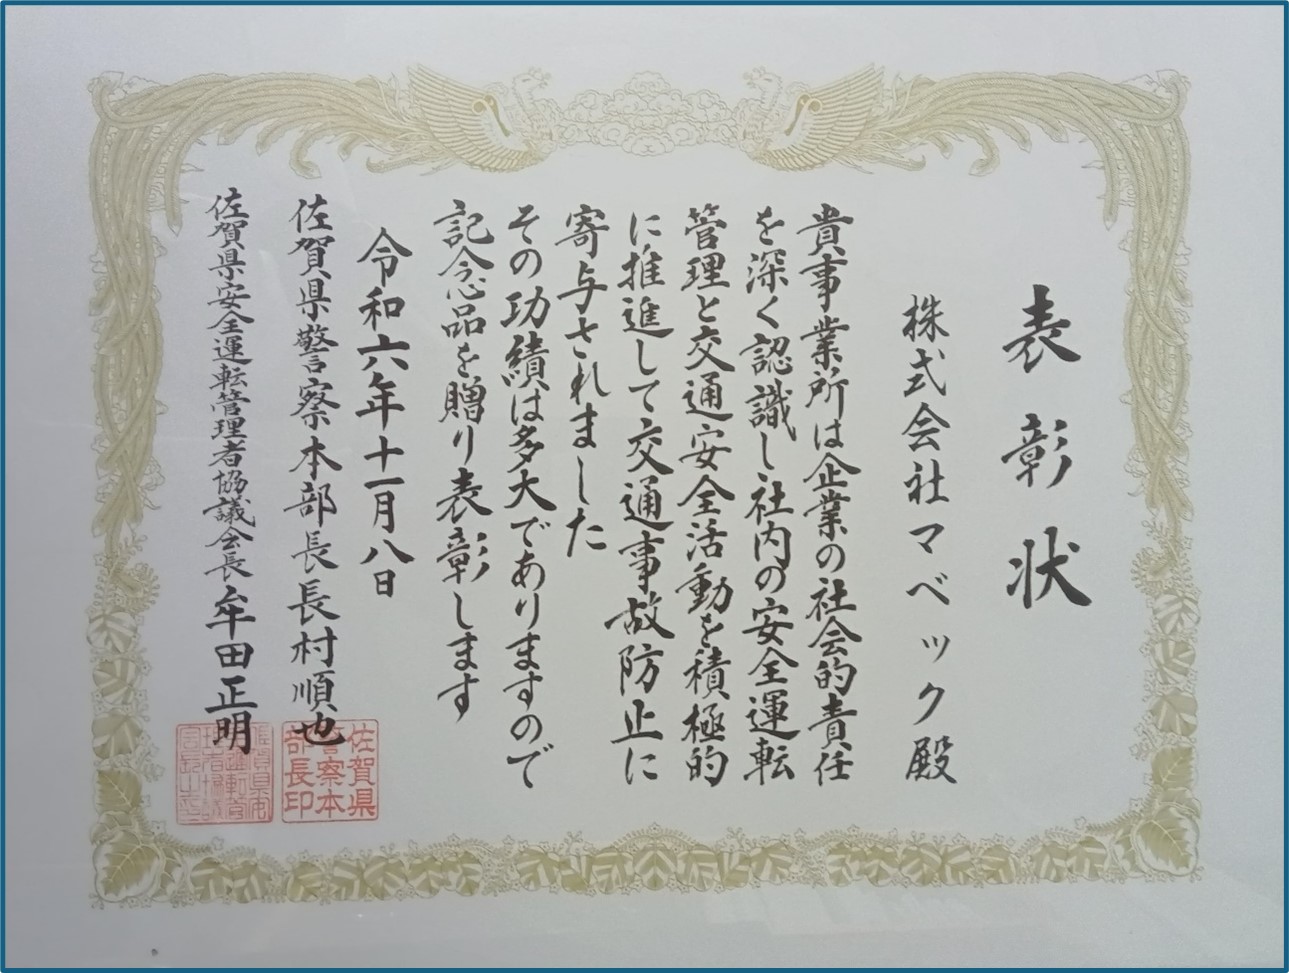 表彰状
株式会社マベック殿
貴事業所は企業の社会的責任
を深く認識し社内の安全運転
管理と交通安全活動を積極的
に推進して交通事故防止に
寄与されました
その功績は多大でありますので
記念品を贈り表彰します
令和六年十一月八日
佐賀県警察本部長長村順也
佐賀県
警察本
部長印
佐賀県安全運転管理者協議会長牟田正明